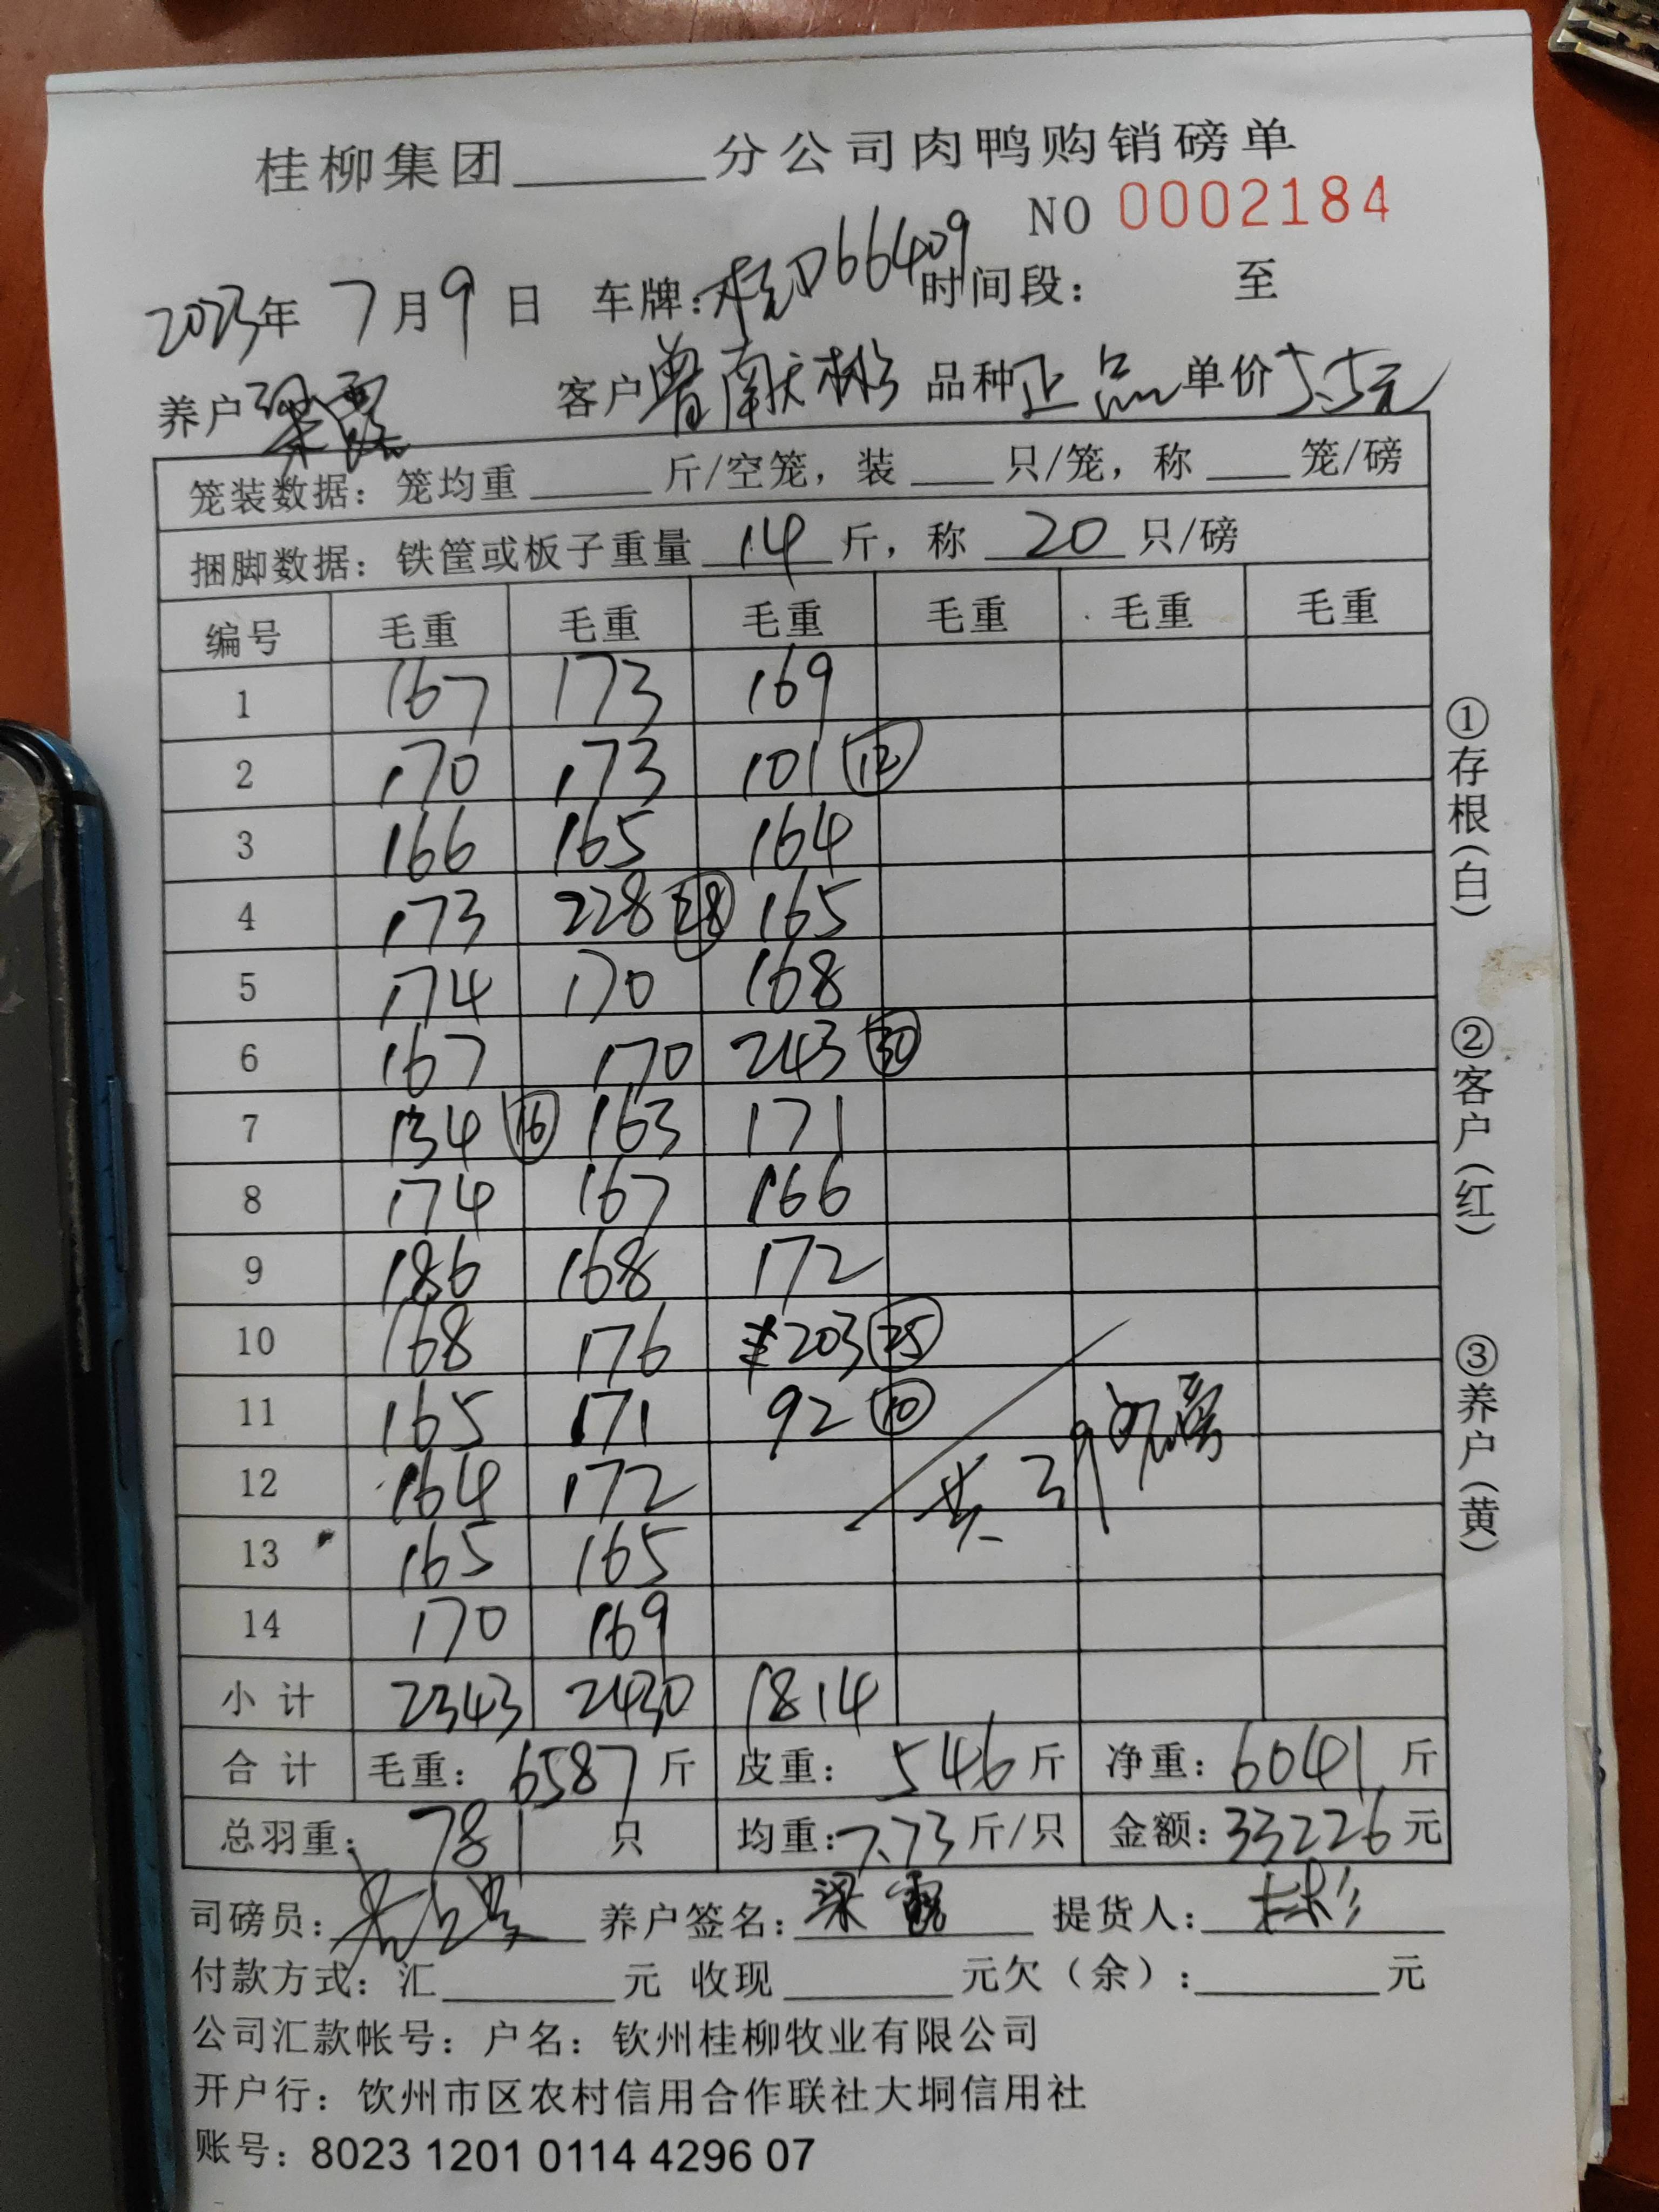 桂柳集团______分公司肉鸭购销磅单
NO 0002184
2023年 7月9日 车牌:桂D66409 时间段: 至
养户梁霞 客户曾南大彬 品种正品 单价5.5元
笼装数据:笼均重______斤/空笼,装____只/笼,称____笼/磅
捆脚数据:铁筐或板子重量 14 斤,称 20 只/磅
编号 毛重 毛重 毛重 毛重 毛重 毛重
1 167 173 169
2 170 173 101 ⑫
3 166 165 164
4 173 228 ㉘ 165
5 174 170 168
6 167 170 243 ㉚
7 134 ⑯ 163 171
8 174 167 166
9 186 168 172
10 168 176 203 ㉕
11 165 171 92 ⑩
12 164 172 共39磅
13 165 165
14 170 169
小计 2343 2430 1814
合计 毛重:6587斤 皮重:546斤 净重:6041斤
总羽重:781只 均重:7.73斤/只 金额:33226元
司磅员: 养户签名:梁霞 提货人:彬
付款方式:汇______元 收现______元欠(余):______元
公司汇款帐号:户名:钦州桂柳牧业有限公司
开户行:饮州市区农村信用合作联社大垌信用社
账号:8023 1201 0114 4296 07
①存根(白)
②客户(红)
③养户(黄)